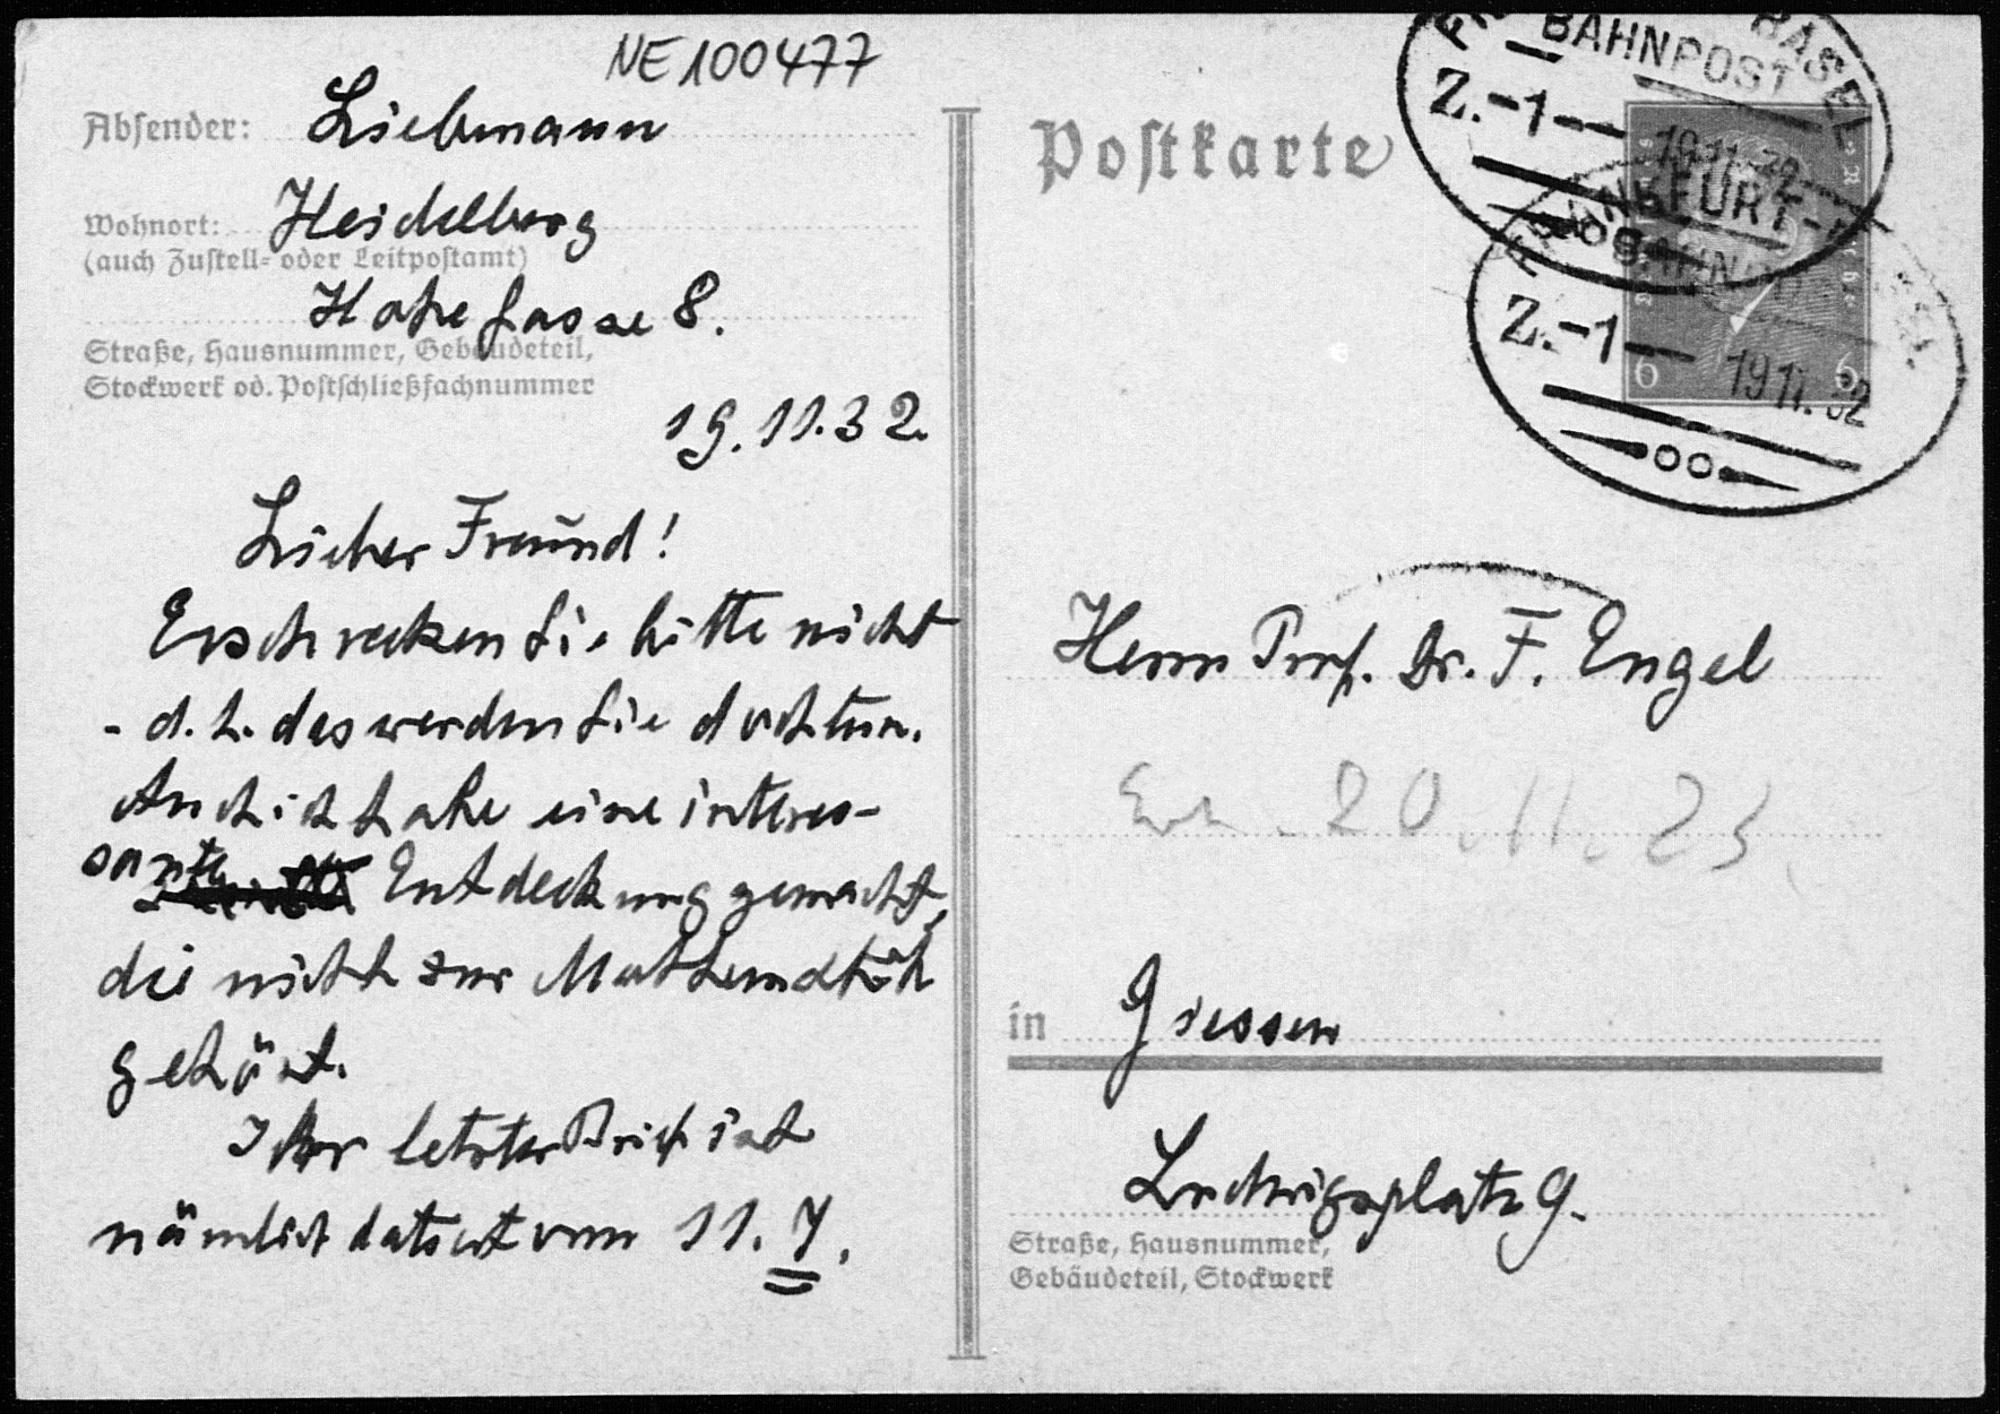 NE100477
Absender: Liebmann
Wohnort: Heidelberg
(auch Zustell- oder Leitpostamt)
Hohegasse 8.
Straße, Hausnummer, Gebäudeteil,
Stockwerk od. Postschließfachnummer
19.11.32.
Lieber Freund!
Erschrecken Sie bitte nicht
- d.h. das werden Sie doch tun.
Auch ich habe eine interes-
sante Entdeckung gemacht,
die nicht zur Mathematik
gehört.
Ihr letzter Brief ist
nämlich datiert vom 11. 7.
Postkarte
BAHNPOST BASEL
Z.-1-- 19.11.32
FRANKFURT-
BAHNPOST
Z.-1-- 19 11. 32
6 6
Herrn Prof. Dr. F. Engel
20. 11. 23.
in Giessen
Ludwigsplatz 9.
Straße, Hausnummer,
Gebäudeteil, Stockwerk